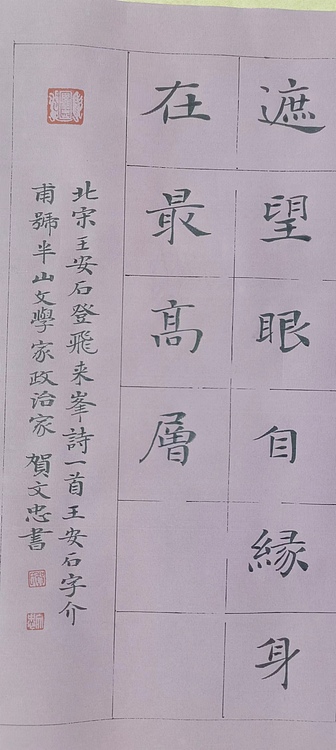 遮望眼自緣身
在最高層
北宋王安石登飛来峯詩一首王安石字介
甫號半山文學家政治家賀文忠書